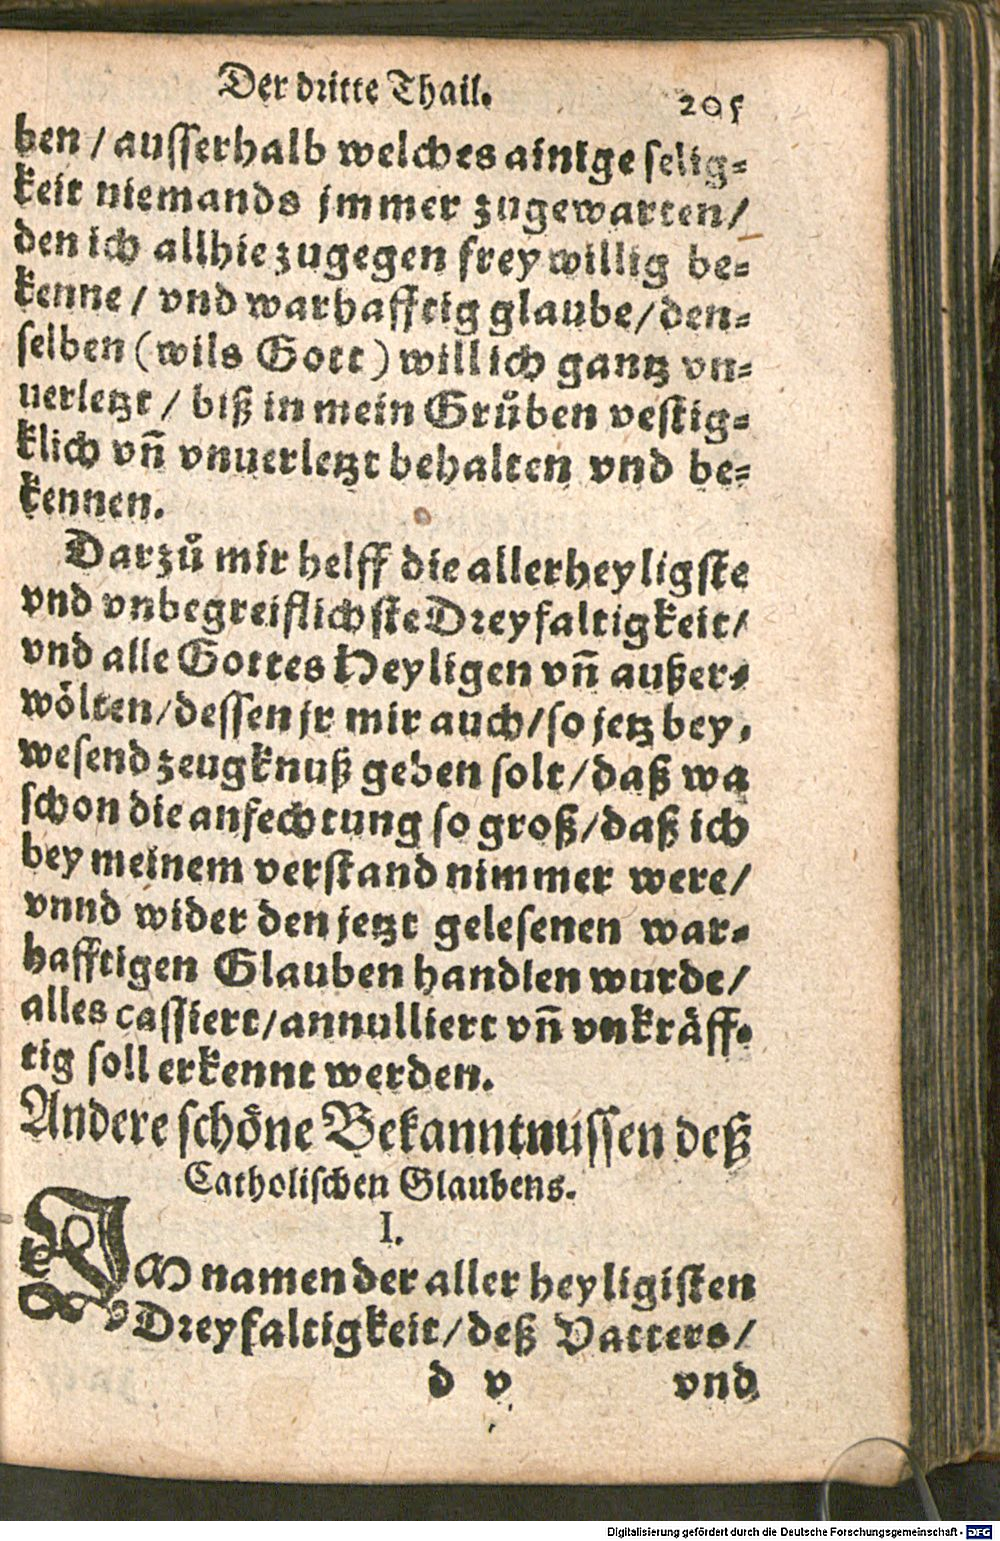 Der dritte Thail. 205
ben / ausserhalb welches ainige selig-
keit niemands jmmer zugewarten /
den ich allhie zugegen frey willig be-
kenne / vnd warhafftig glaube / den-
selben (wils Gott) will ich gantz vn-
uerletzt / biß in mein Grůben vestig-
klich vñ vnuerletzt behalten vnd be-
kennen.
Darzů mir helff die allerheyligste
vnd vnbegreiflichste Dreyfaltigkeit /
vnd alle Gottes Heyligen vñ außer-
wölten / dessen jr mir auch / so jetz bey,
wesend zeugknuß geben solt / daß wa
schon die anfechtung so groß / daß ich
bey meinem verstand nimmer were /
vnnd wider den jetzt gelesenen war-
hafftigen Glauben handlen wurde /
alles cassiert / annulliert vñ vnkräff-
tig soll erkennt werden.
Andere schöne Bekanntnussen deß
Catholischen Glaubens.
I.
IM namen der aller heyligisten
Dreyfaltigkeit / deß Vatters /
d v vnd
Digitalisierung gefördert durch die Deutsche Forschungsgemeinschaft - DFG